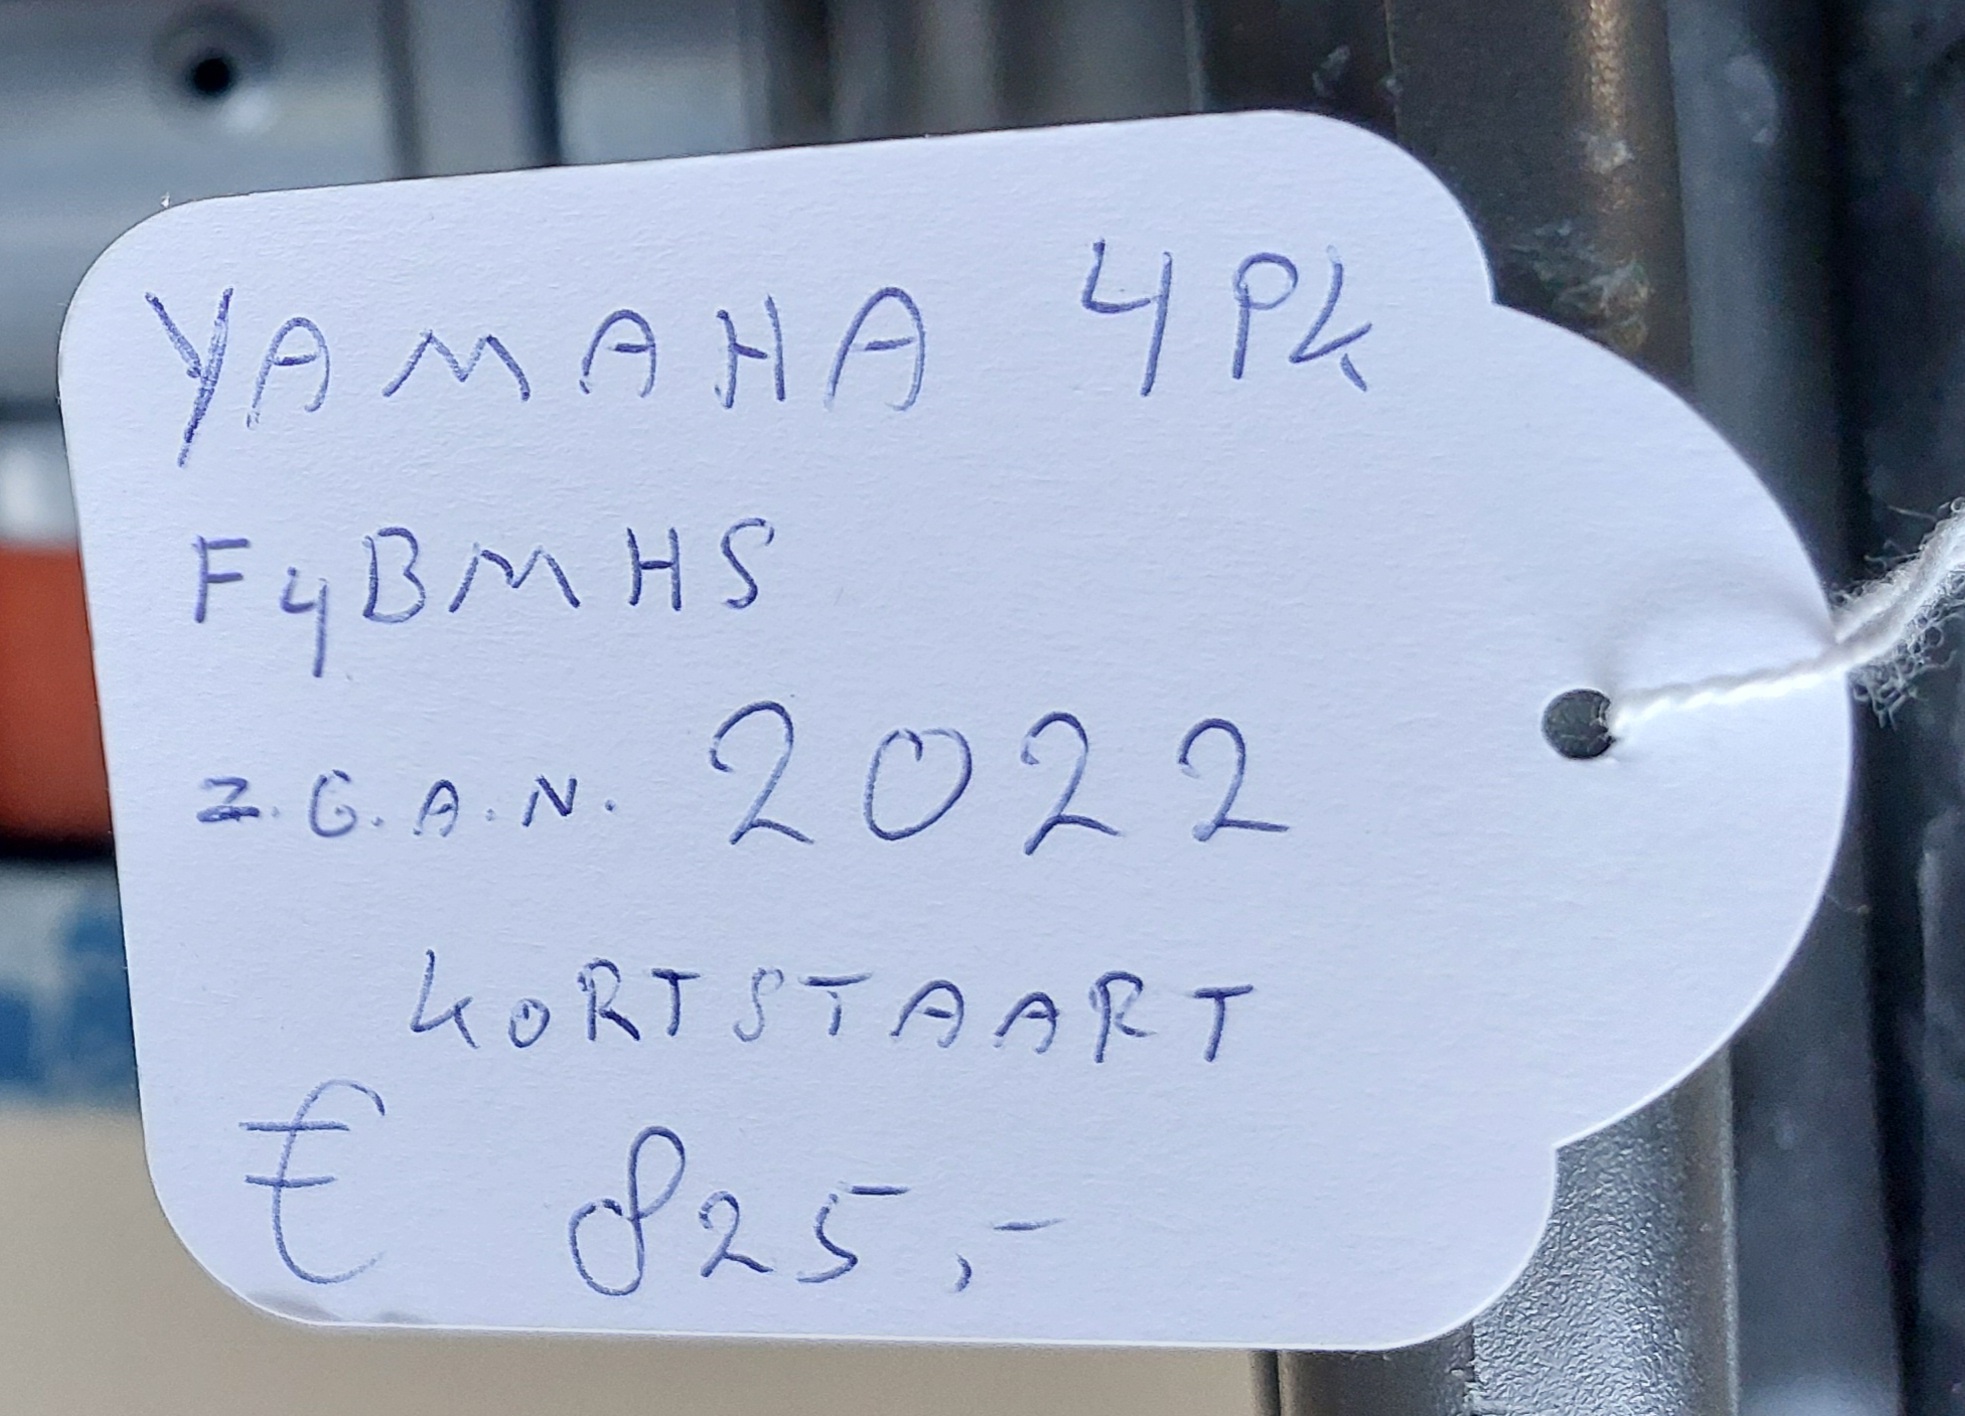 YAMAHA 4PK
F4BMHS
Z.G.A.N. 2022
KORTSTAART
€ 825,-